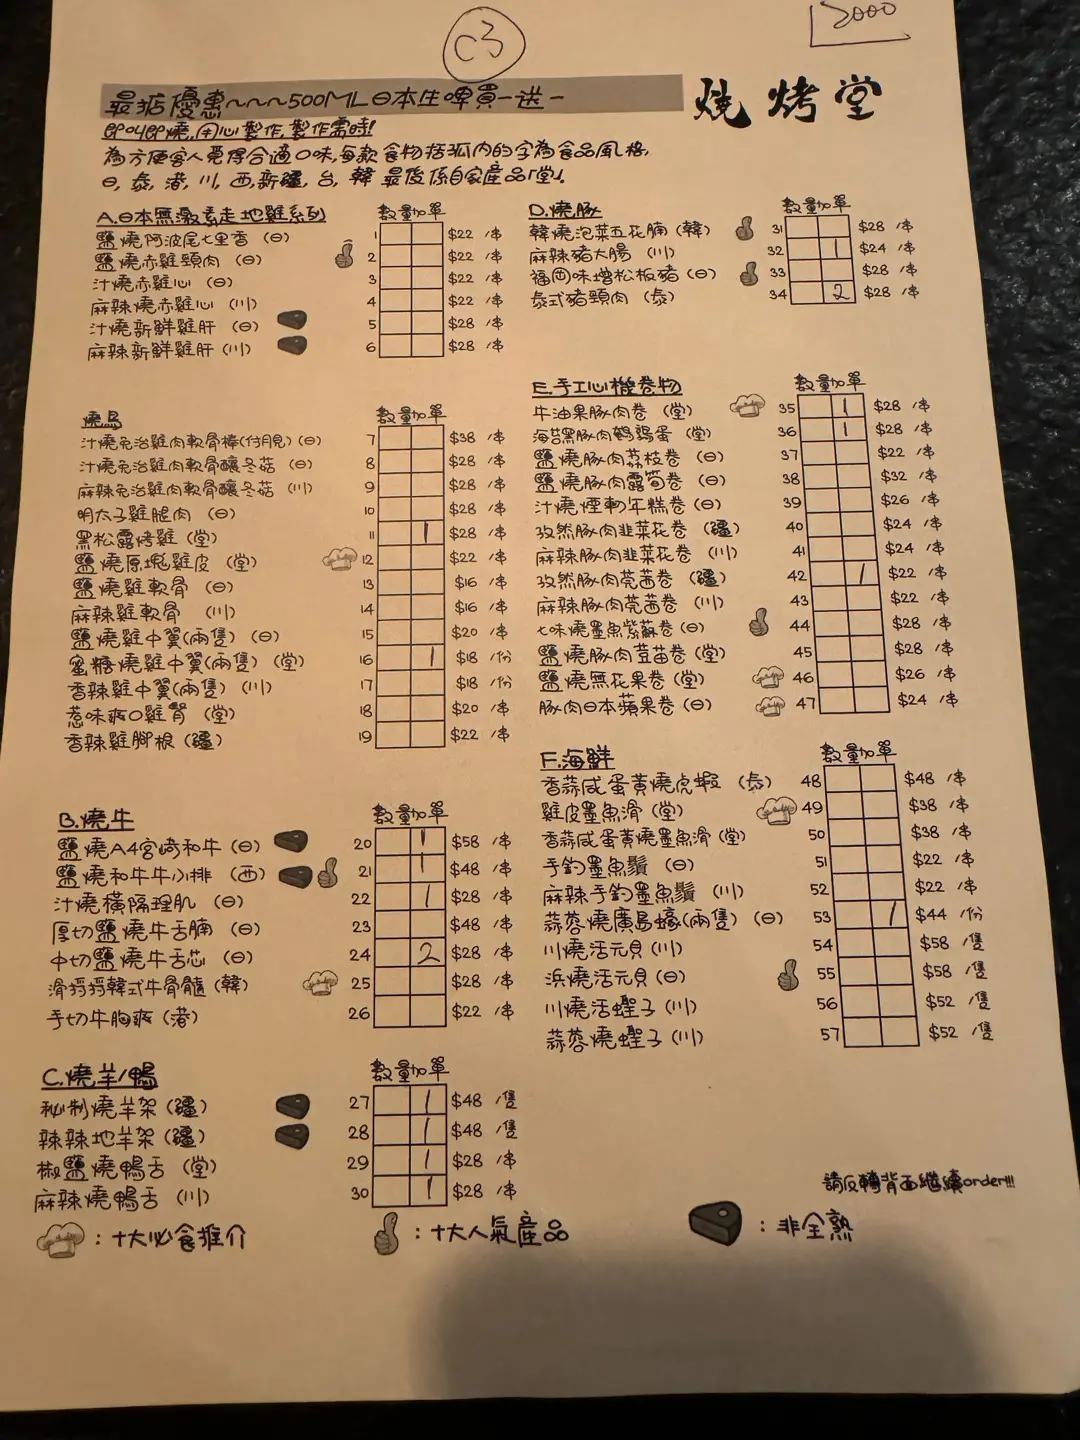 C3
2000
最掂優惠~~~500ML日本生啤買一送一
燒烤堂
即叫即燒,用心製作,製作需時!
為方便客人覓得合適口味,每款食物括弧內的字為食品風格,
日,泰,港,川,西,新疆,台,韓 最後係自家產品「堂」.
A.日本無激素走地雞系列 數量加單
鹽燒阿波尾七里香 (日) 1 $22 /串
鹽燒赤雞頸肉 (日) 2 $22 /串
汁燒赤雞心 (日) 3 $22 /串
麻辣燒赤雞心 (川) 4 $22 /串
汁燒新鮮雞肝 (日) 5 $28 /串
麻辣新鮮雞肝 (川) 6 $28 /串
燒鳥 數量加單
汁燒免治雞肉軟骨棒(付月見) (日) 7 $38 /串
汁燒免治雞肉軟骨釀冬菇 (日) 8 $28 /串
麻辣免治雞肉軟骨釀冬菇 (川) 9 $28 /串
明太子雞腿肉 (日) 10 $28 /串
黑松露烤雞 (堂) 11 1 $28 /串
鹽燒原塊雞皮 (堂) 12 $22 /串
鹽燒雞軟骨 (日) 13 $16 /串
麻辣雞軟骨 (川) 14 $16 /串
鹽燒雞中翼(兩隻) (日) 15 $20 /串
蜜糖燒雞中翼(兩隻) (堂) 16 1 $18 /份
香辣雞中翼(兩隻) (川) 17 $18 /份
惹味爽口雞腎 (堂) 18 $20 /串
香辣雞腳根 (疆) 19 $22 /串
B.燒牛 數量加單
鹽燒A4宮崎和牛 (日) 20 1 $58 /串
鹽燒和牛牛小排 (西) 21 1 $48 /串
汁燒橫隔理肌 (日) 22 1 $28 /串
厚切鹽燒牛舌腩 (日) 23 $48 /串
中切鹽燒牛舌芯 (日) 24 2 $28 /串
滑捋捋韓式牛骨髓 (韓) 25 $28 /串
手切牛胸爽 (港) 26 $22 /串
C.燒羊/鴨 數量加單
秘制燒羊架 (疆) 27 1 $48 /隻
辣辣地羊架 (疆) 28 1 $48 /隻
椒鹽燒鴨舌 (堂) 29 1 $28 /串
麻辣燒鴨舌 (川) 30 1 $28 /串
D.燒豚 數量加單
韓燒泡菜五花腩 (韓) 31 $28 /串
麻辣豬大腸 (川) 32 1 $24 /串
福岡味增松板豬 (日) 33 $28 /串
泰式豬頸肉 (泰) 34 2 $28 /串
E.手工心機卷物 數量加單
牛油果豚肉卷 (堂) 35 1 $28 /串
海苔黑豚肉鵪鶉蛋 (堂) 36 1 $28 /串
鹽燒豚肉荔枝卷 (日) 37 $22 /串
鹽燒豚肉露筍卷 (日) 38 $32 /串
汁燒煙韌年糕卷 (日) 39 $26 /串
孜然豚肉韭菜花卷 (疆) 40 $24 /串
麻辣豚肉韭菜花卷 (川) 41 $24 /串
孜然豚肉芫茜卷 (疆) 42 1 $22 /串
麻辣豚肉芫茜卷 (川) 43 $22 /串
七味燒墨魚紫蘇卷 (日) 44 $28 /串
鹽燒豚肉荳苗卷 (堂) 45 $28 /串
鹽燒無花果卷 (堂) 46 $26 /串
豚肉日本蘋果卷 (日) 47 $24 /串
F.海鮮 數量加單
香蒜咸蛋黃燒虎蝦 (泰) 48 $48 /串
雞皮墨魚滑 (堂) 49 $38 /串
香蒜咸蛋黃燒墨魚滑 (堂) 50 $38 /串
手釣墨魚鬚 (日) 51 $22 /串
麻辣手釣墨魚鬚 (川) 52 $22 /串
蒜蓉燒廣島蠔(兩隻) (日) 53 1 $44 /份
川燒活元貝 (川) 54 $58 /隻
浜燒活元貝 (日) 55 $58 /隻
川燒活蟶子 (川) 56 $52 /隻
蒜蓉燒蟶子 (川) 57 $52 /隻
請反轉背面繼續order!!!
:十大必食推介
:十大人氣產品
:非全熟